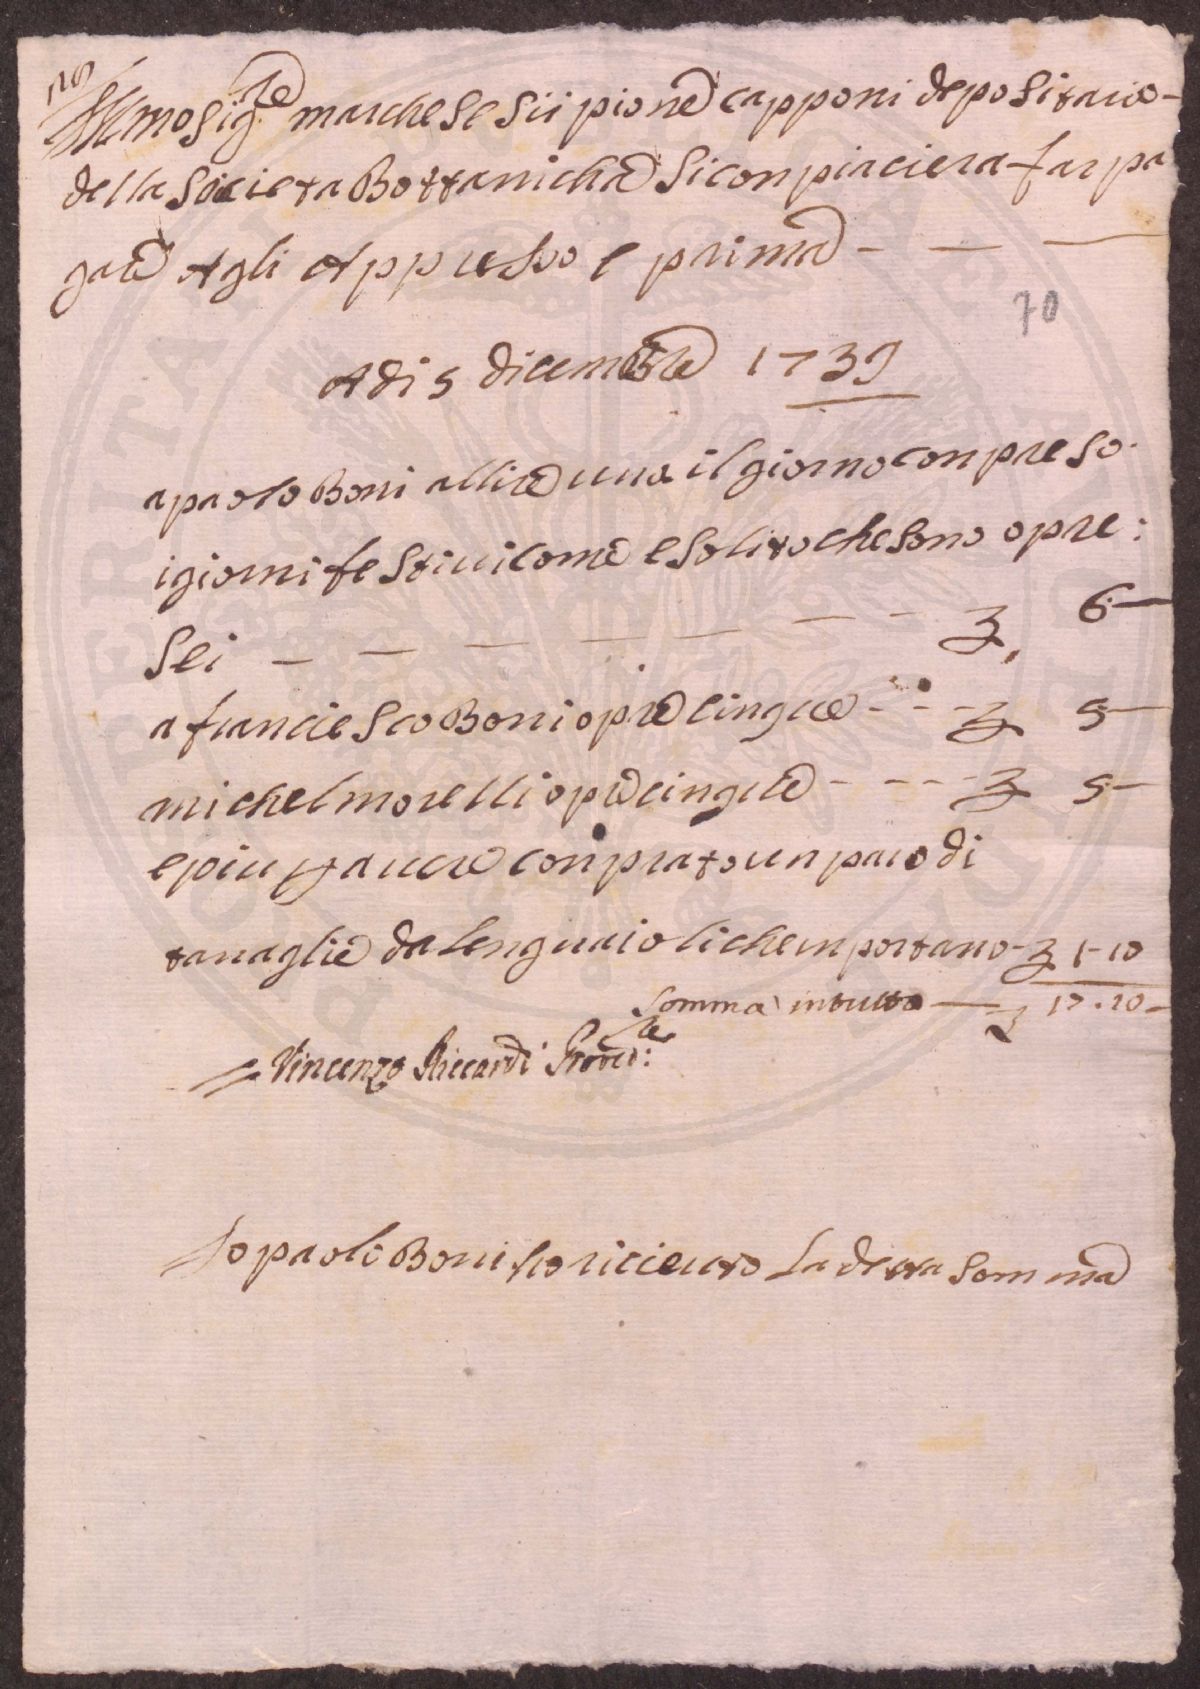 Illmo Sig.re marchese Sципione capponi depositario
della Societa Bottanicha Siconpiaciera far pa
gare Agli Appresso e prima
70
Adi 5 dicembre 1739
a paolo Boni allire una il giorno conpreso
i giorni festiui come e solito che sono opre:
Sei 6
a franciesco Boni opre cinque 5
michel morelli opre cinque 5
e piu p auere conprato un paro di
tanaglie da lengniaioli che inportano 1-10
Somma in tutto 17.10
Vincenzo Riccardi Proved.re
Io paolo Boni ho riceuuto La detta Somma